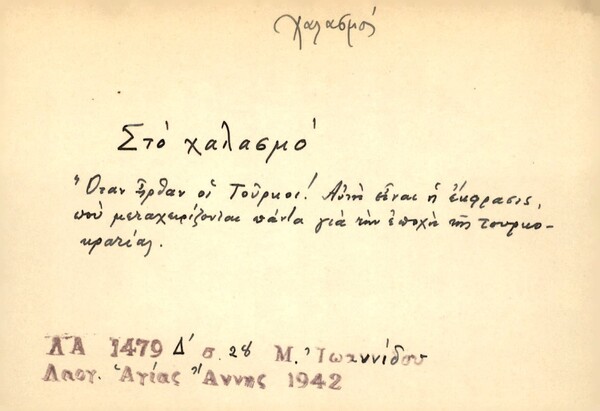 χαλασμό
Στό χαλασμό
Ὅταν ἦρθαν οἱ Τοῦρκοι! Αὐτή εἶναι ἡ ἔκφρασις,
πού μεταχειρίζονται πάντα γιά τήν ἐποχή τῆς τουρκο-
κρατίας.
ΛΑ 1479 Δ' σ. 28 Μ. Ἰωαννίδου
Λαογ. Ἁγίας Ἄννης 1942